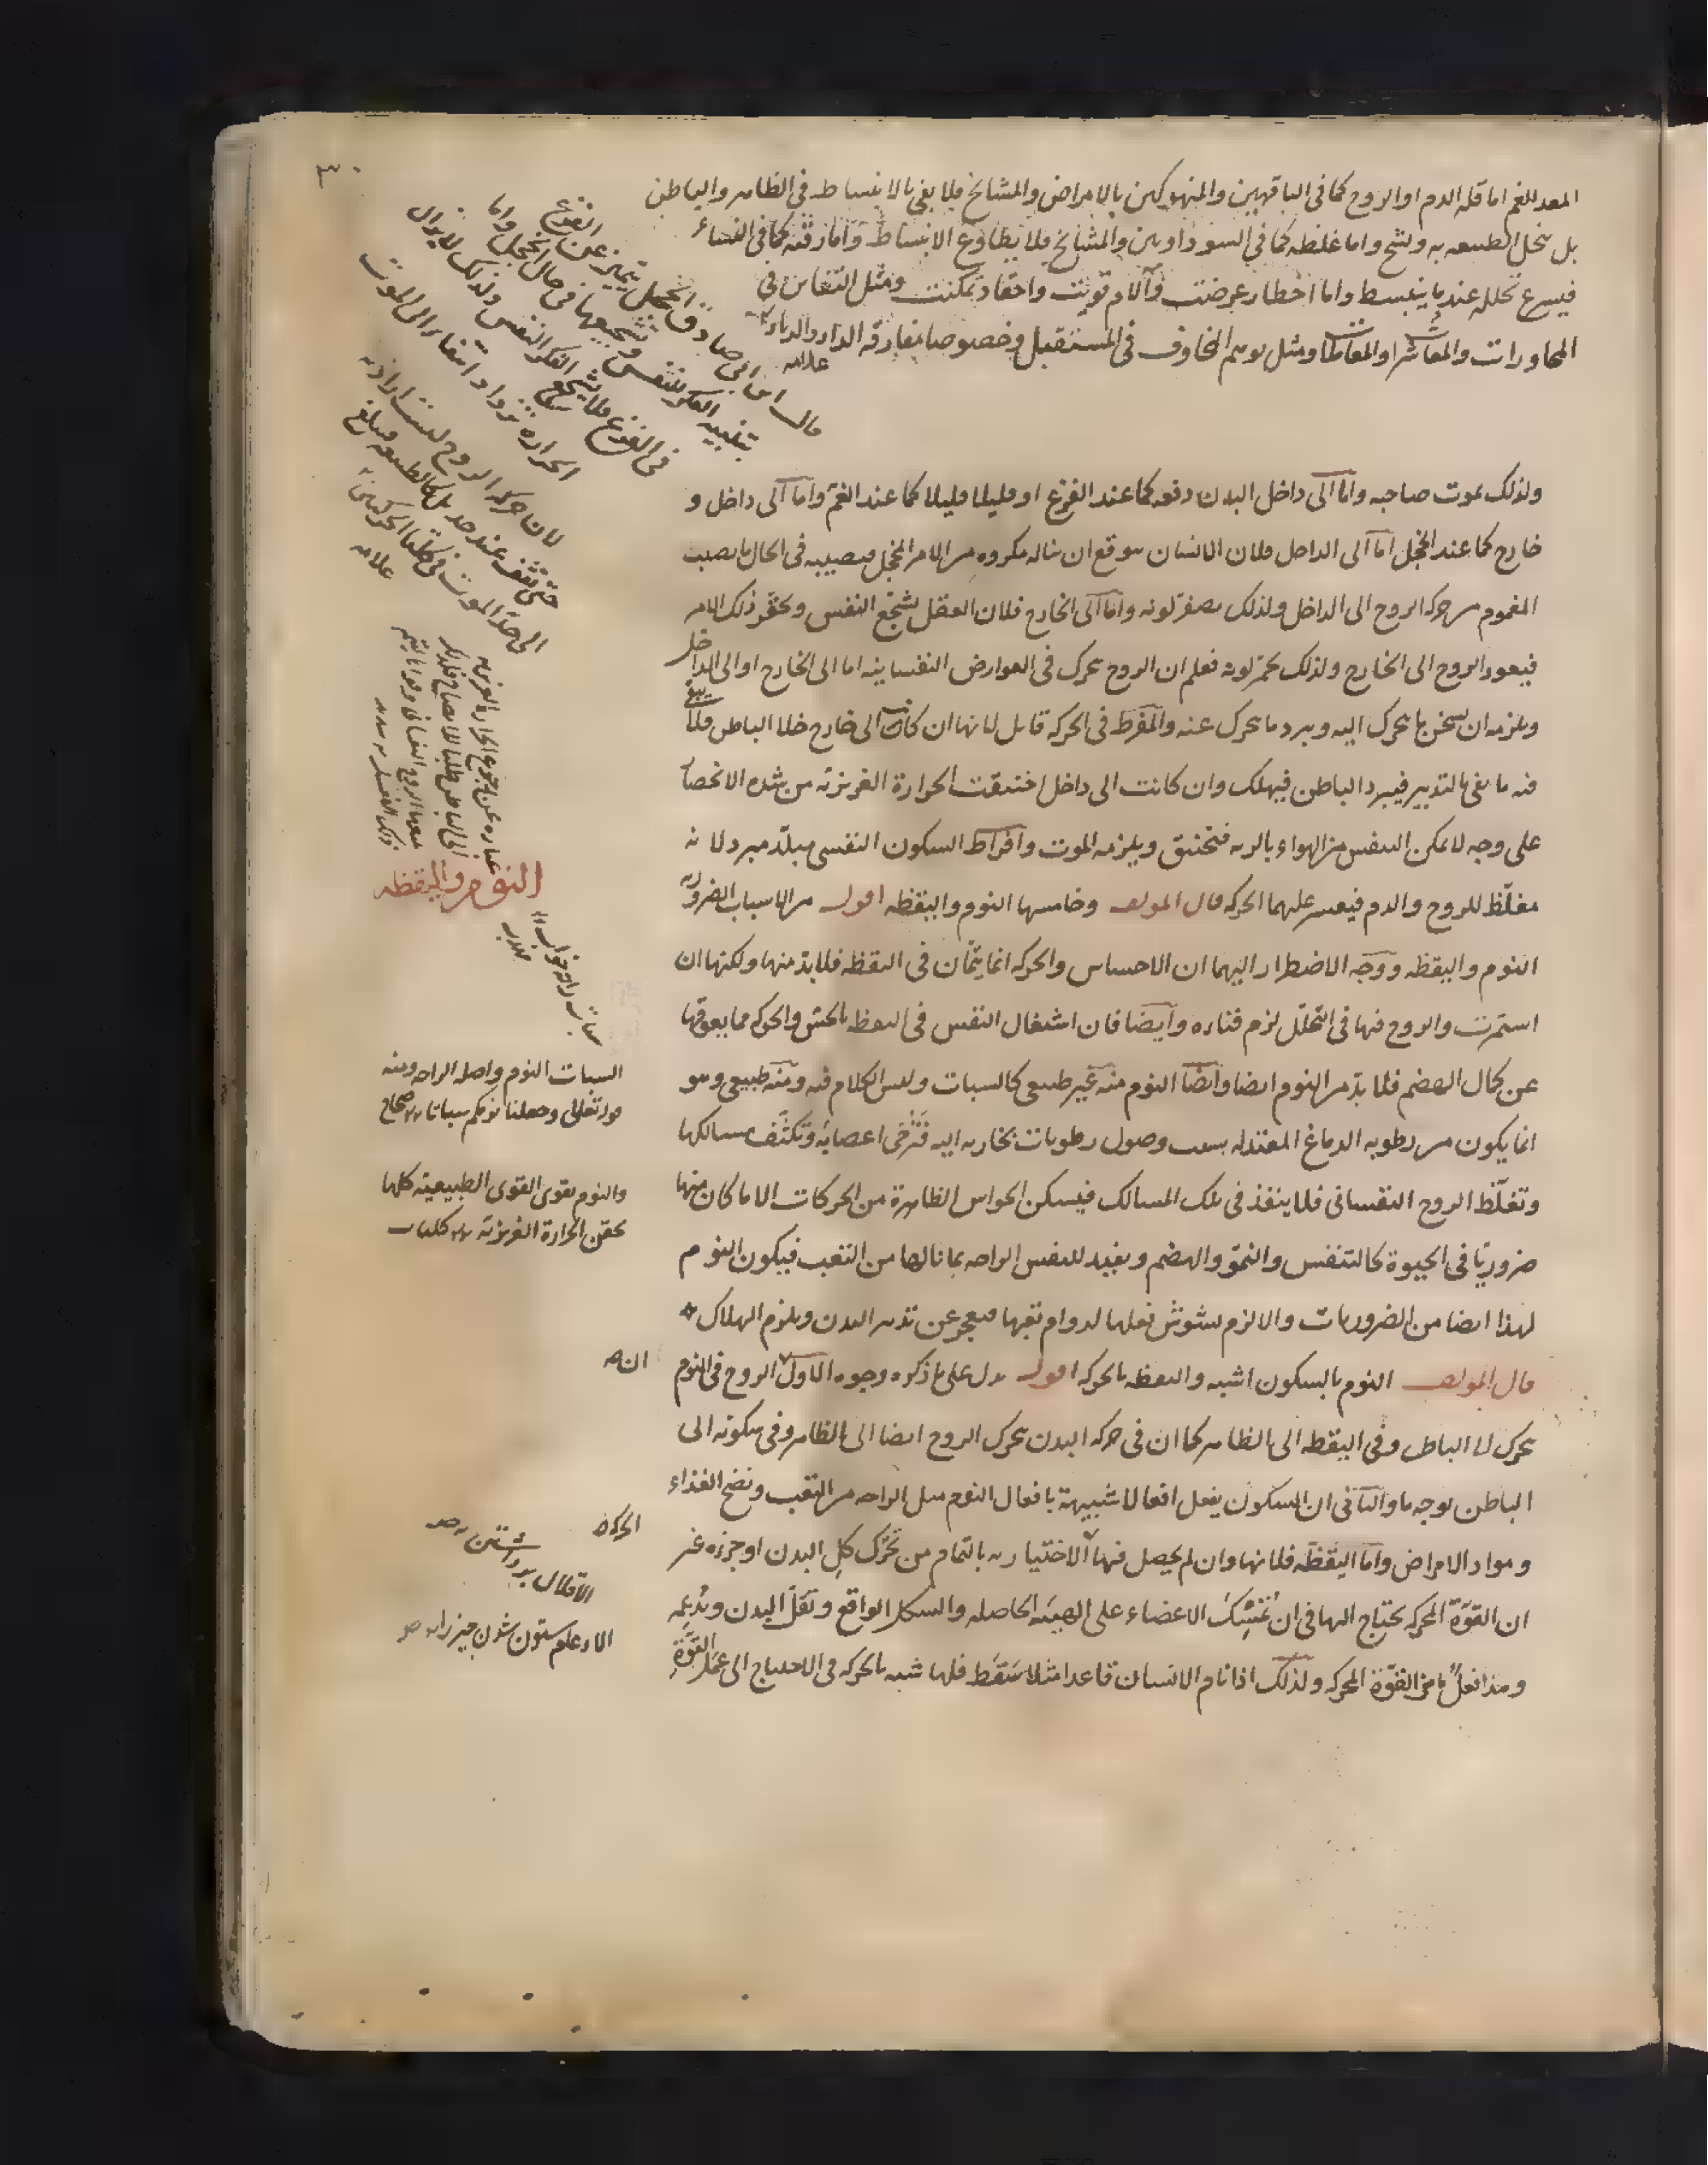 ٣٠
المعد للغم اما قله الدم او الروح كما فى الناقهين والمنهوكين بالامراض والمشايخ فلا يفى بالانبساط فى الظاهر والباطن
بل تبخل الطبيعه به وتشح واما غلظه كما فى السوداويين والمشايخ فلا يطاوع الانبساط واما رقته كما فى النساء
فيسرع تحلله عند ما ينبسط واما اخطار عرضت وآلام قويت واحقاد تمكنت ومثل التفاس فى
المحاورات والمعاشرا والمعاملا ومثل توهم المخاوف فى المستقبل وخصوصا مفارقه الدار والديار
علامه
قال ابن ابى صادق الخجل يتميز عن الفزع
بتنبيه الفكر للنفس وتشجيعها فى حال الخجل واما
فى الفزع فلا يشجع الفكر النفس ولذلك لا يزال
الحرارة تزداد انتفاء الى الموت
لان حركه الروح ليست اراديه
حتى تقف عند حد بل كالطبيعه فيبلغ
الى حد الموت فى كلتا الحركتين
علامه
ولذلك يموت صاحبه واما الى داخل البدن دفعه كما عند الفزع او قليلا قليلا كما عند الغم واما الى داخل و
خارج كما عند الخجل اما الى الداخل فلان الانسان يتوقع ان يناله مكروه من الامر المخجل فيصيبه فى الحال ما يصيب
المغموم من حركه الروح الى الداخل ولذلك يصفر لونه واما الى الخارج فلان العقل يشجع النفس ويحقر ذلك الامر
فيعود الروح الى الخارج ولذلك يحمر لونه فعلم ان الروح يحرك فى العوارض النفسانيه اما الى الخارج او الى الداخل
ويلزمه ان يسخن ما يحرك اليه ويبرد ما يحرك عنه والمفرط فى الحركه قاتل لانها ان كانت الى خارج خلا الباطن فلا يبقى
فيه ما يفى بالتدبير فيبرد الباطن فيهلك وان كانت الى داخل اختنقت الحرارة الغريزيه من شده الانحصا
على وجه لا يمكن التنفس من الهواء بالريه فتختنق ويلزمه الموت وافراط السكون النفسى مبلد مبرد لانه
مغلظ للروح والدم فيعسر عليهما الحركه قال المولف وخامسها النوم واليقظه اقول من الاسباب الضروريه
النوم واليقظه ووجه الاضطرار اليهما ان الاحساس والحركه انما يتمان فى اليقظه فلا بد منها ولكنها ان
استمرت والروح فيها فى التحلل لزم فناءه وايضا فان اشتغال النفس فى اليقظه بالحس والحركه مما يعوقها
عن كمال الهضم فلا بد من النوم ايضا وايضا النوم منه غير طبيعى كالسبات وليس الكلام فيه ومنه طبيعى وهو
انما يكون من رطوبه الدماغ المعتدله بسبب وصول رطوبات بخاريه اليه فترخى اعصابه وتكثف مسالكها
وتغلظ الروح النفسانى فلا ينفذ فى تلك المسالك فيسكن الحواس الظاهرة من الحركات الا ما كان منها
ضروريا فى الحيوة كالتنفس والنمو والهضم ويفيد للنفس الراحه بما نالها من التعب فيكون النوم
لهذا ايضا من الضروريات والا لزم تشوش فعلها لدوام تعبها فيعجز عن تدبير البدن ويلزم الهلاك
قال المولف النوم بالسكون اشبه واليقظه بالحركه اقول يدل على ما ذكره وجوه الاول ان الروح فى النوم
يحرك الى الباطن وفى اليقظه الى الظاهر كما ان فى حركه البدن يحرك الروح ايضا الى الظاهر وفى سكونه الى
الباطن بوجه ما والثانى ان السكون يفعل افعالا شبيهة بافعال النوم مثل الراحه من التعب ونضج الغذاء
ومواد الامراض واما اليقظه فلانها وان لم يحصل فيها الحركة الاختياريه بالتمام من تحرك كل البدن او جزءه غير
ان القوة المحركه يحتاج اليها فى ان تمسك الاعضاء على الهيئه الحاصله والشكل الواقع وتقل البدن وتدعمه
وهذا فعل ما من القوة المحركه ولذلك اذا نام الانسان قاعدا مثلا سقط فلها شبه بالحركه فى الاحتياج الى عمل القوة
النوم واليقظه
السبات النوم واصله الراحه ومنه
قوله تعالى وجعلنا نومكم سباتا صحاح
والنوم يقوى القوى الطبيعية كلها
بحقن الحرارة الغريزيه كليات
الحركة
الاقلال برداشتن ص
الادعام ستون شدن چيزرا ص